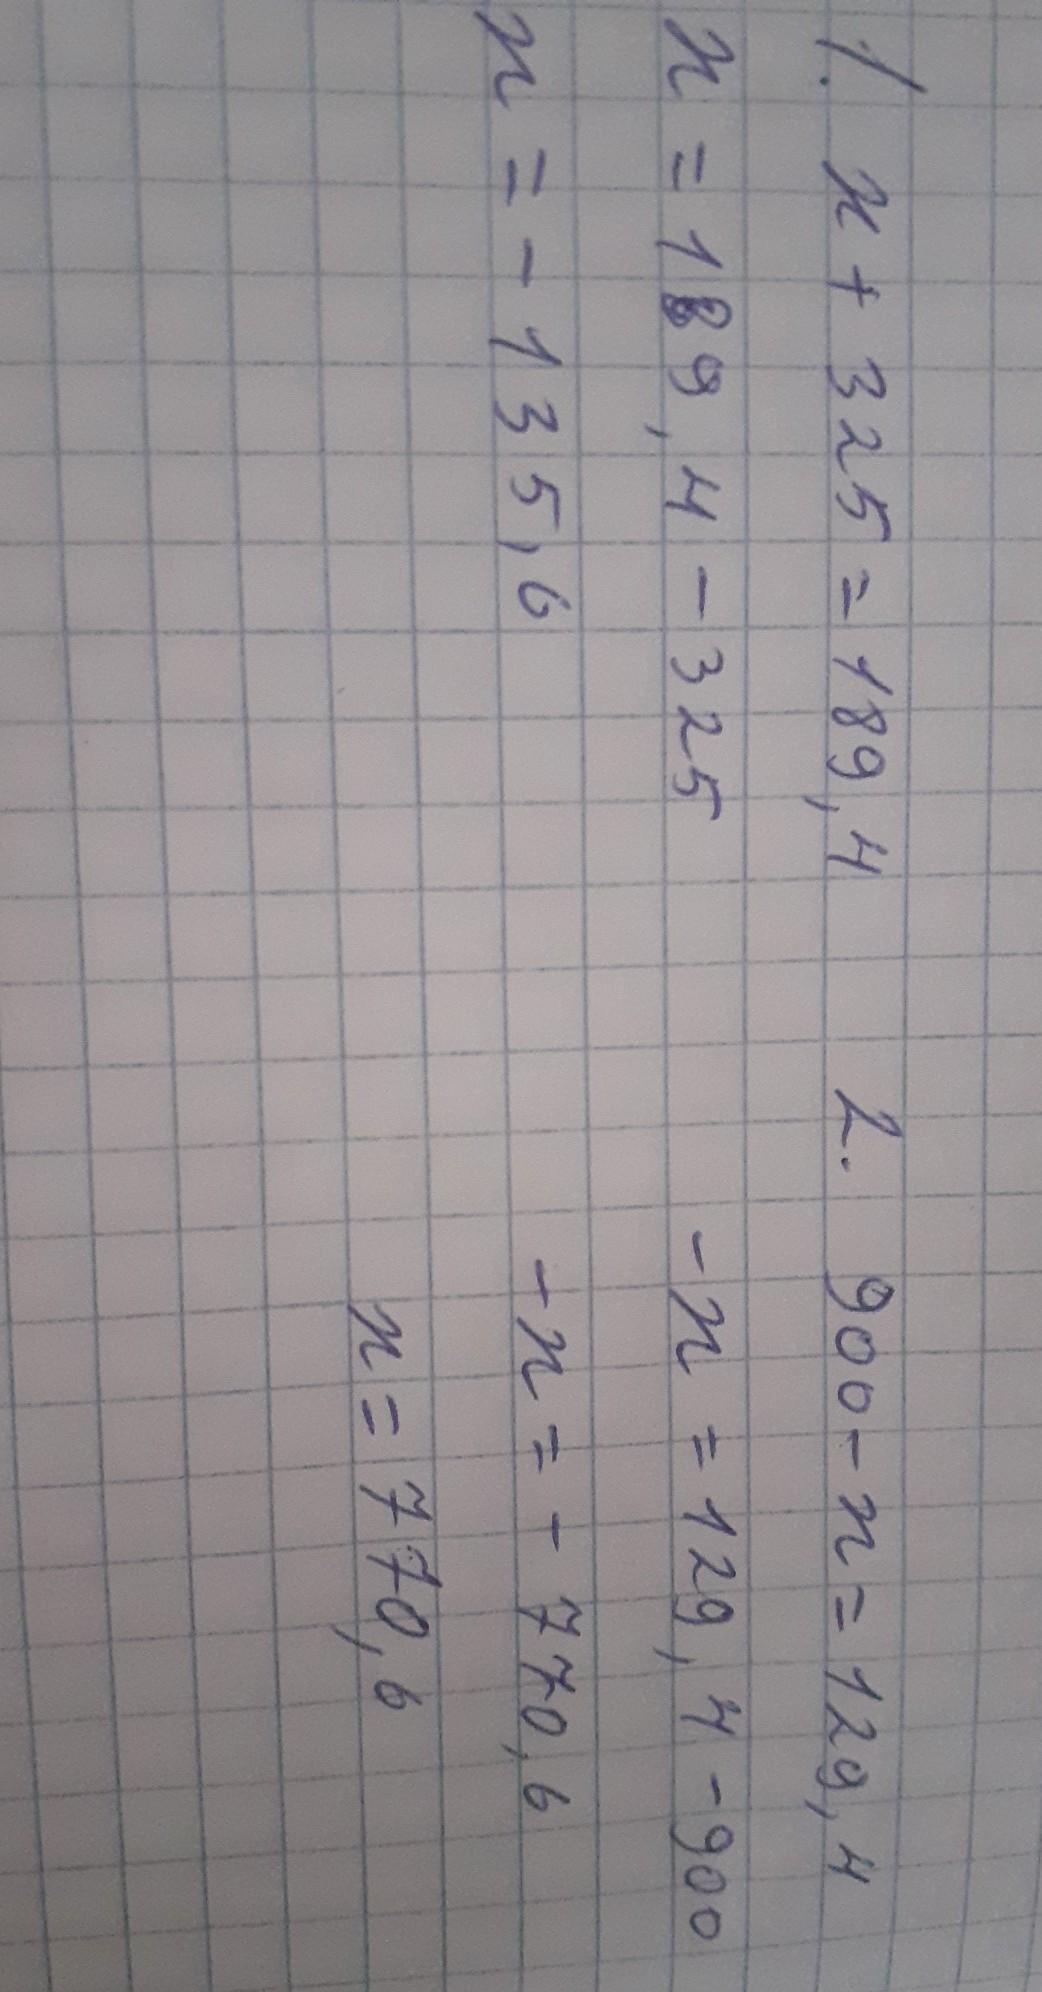 1. x + 325 = 189,4
x = 189,4 - 325
x = - 135,6
2. 900 - x = 129,4
- x = 129,4 - 900
- x = - 770,6
x = 770,6